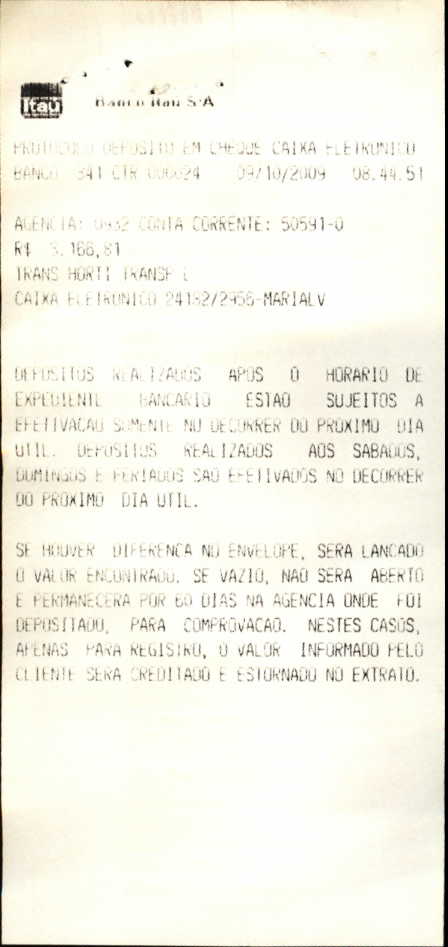 Itaú
Banco Itaú S.A
PROTOCOLO DEPOSITO EM CHEQUE CAIXA ELETRONICO
BANCO 341 CTR 000024 09/10/2009 08.44.51
AGENCIA: 0932 CONTA CORRENTE: 50591-0
R$ 3.166,81
TRANS HORTI TRANSP L
CAIXA ELETRONICO 24182/2956-MARIALV
DEPOSITOS REALIZADOS APOS O HORARIO DE
EXPEDIENTE BANCARIO ESTAO SUJEITOS A
EFETIVACAO SOMENTE NO DECORRER DO PROXIMO DIA
UTIL. DEPOSITOS REALIZADOS AOS SABADOS,
DOMINGOS E FERIADOS SAO EFETIVADOS NO DECORRER
DO PROXIMO DIA UTIL.
SE HOUVER DIFERENCA NO ENVELOPE, SERA LANCADO
O VALOR ENCONTRADO. SE VAZIO, NAO SERA ABERTO
E PERMANECERA POR 60 DIAS NA AGENCIA ONDE FOI
DEPOSITADO, PARA COMPROVACAO. NESTES CASOS,
APENAS PARA REGISTRO, O VALOR INFORMADO PELO
CLIENTE SERA CREDITADO E ESTORNADO NO EXTRATO.